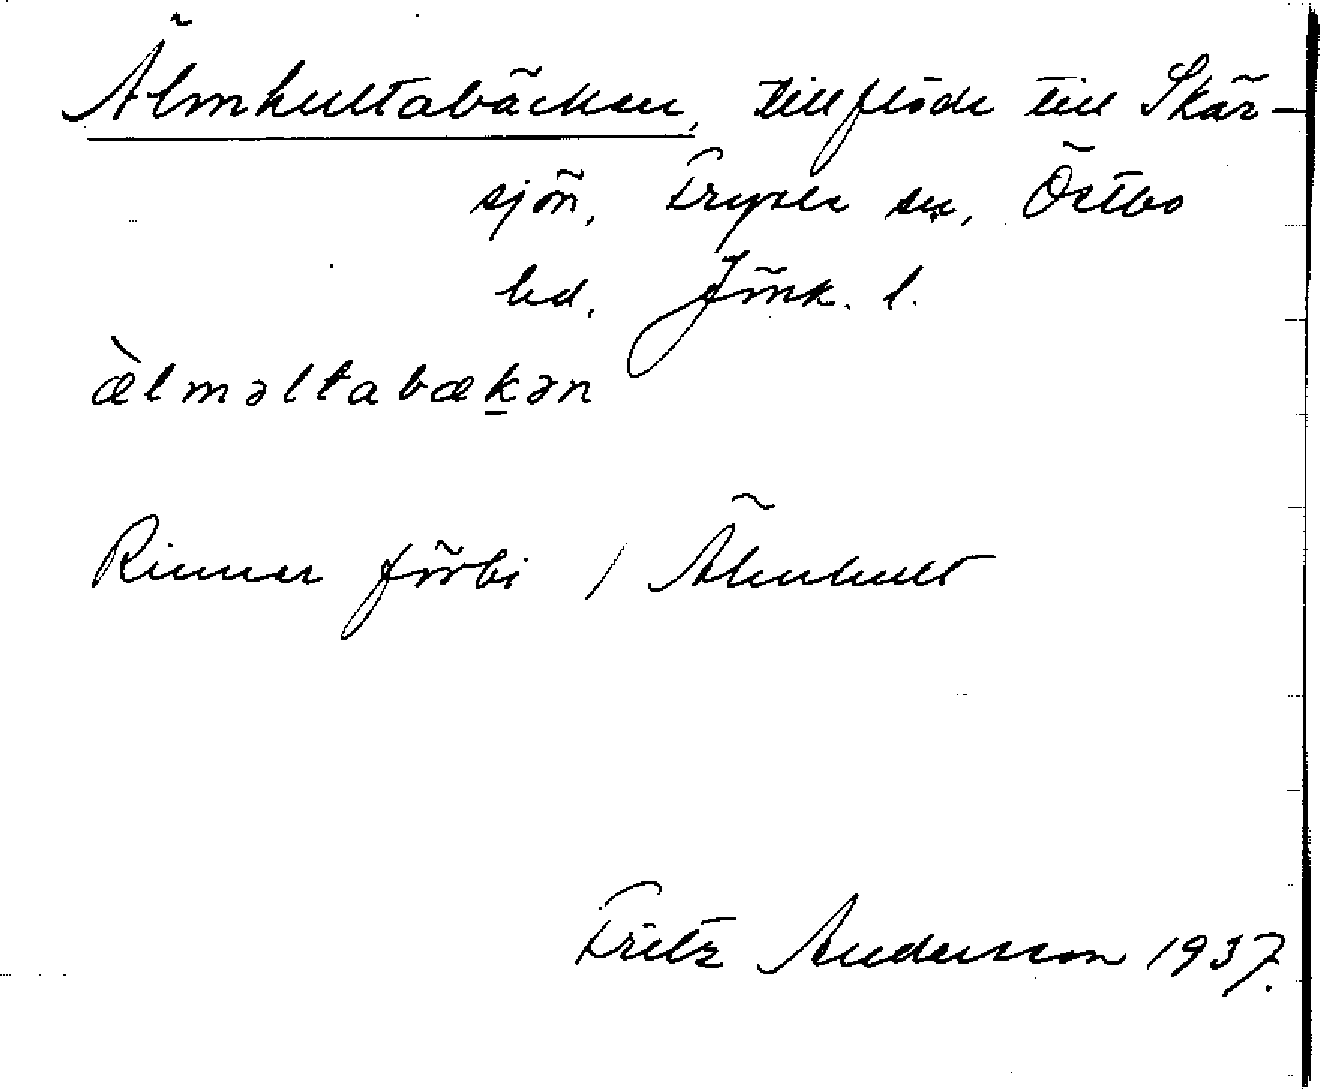 Älmhultabäcken, tillflöde till Skär-
sjön, Fryele sn, Östbo
hd. Jönk. l.
æ̀lməltabæḵən
Rinner förbi / Älmhult
Fritz Andersson 1937.